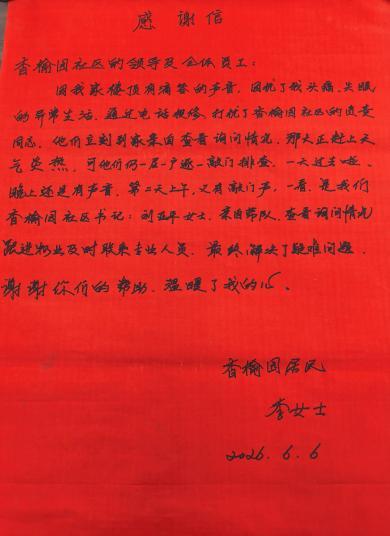 感谢信
香榆园社区的领导及全体员工:
因我家楼顶有滴答的声音,困扰了我头痛、失眠
的异常生活,通过电话报修,打扰了香榆园社区的负责
同志,他们立刻到家来查看询问情况,那天正赶上天
气炎热,可他们仍一层一户逐一敲门排查,一天过去啦,
晚上还是有声音,第二天上午,又有敲门声,一看,是我们
香榆园社区书记:刘亚平女士,亲自带队,查看询问情况
跟进物业及时联系专业人员,最终解决了疑难问题,
谢谢你们的帮助,温暖了我的心。
香榆园居民
李女士
2026.6.6